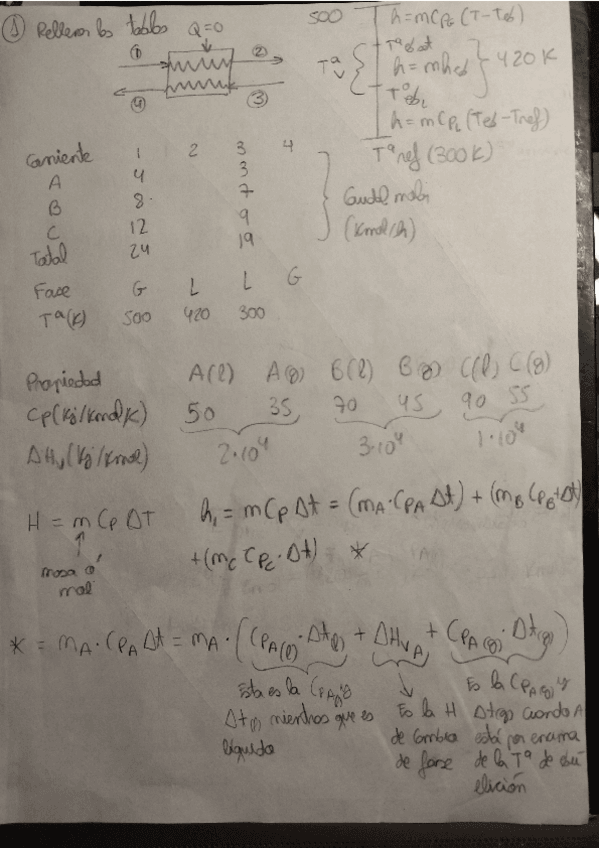 ① Rellenar las tablas Q=0
① ②
④ ③
500 h = mCpG (T-Teb)
Tª sat
Tªv h = mheb 420 K
Tªeb,
h = mCpL (Teb-Tref)
Tªref (300K)
Corriente 1 2 3 4
A 4 3
B 8 7
C 12 9
Total 24 19
Caudal molar
(Kmol/h)
Fase G L L G
Tª(K) 500 420 300
Propiedad A(l) A(g) B(l) B(g) C(l) C(g)
Cp(Kj/Kmol K) 50 35 70 45 90 55
ΔHv(Kj/Kmol) 2·10⁴ 3·10⁴ 1·10⁴
H = m Cp ΔT
masa ó
mol
h₁ = m Cp Δt = (mA·CpA Δt) + (mB CpB·Δt)
+ (mC CpC·Δt) *
* = mA·CpA Δt = mA·(CpA(l)·Δt(l) + ΔHvA + CpA(g)·Δt(g))
Esta es la CpA y
Δt(l) mientras que es
líquido
Es la H
de cambio
de fase
Es la CpA(g) y
Δt(g) cuando A
está por encima
de la Tª de ebu
llición